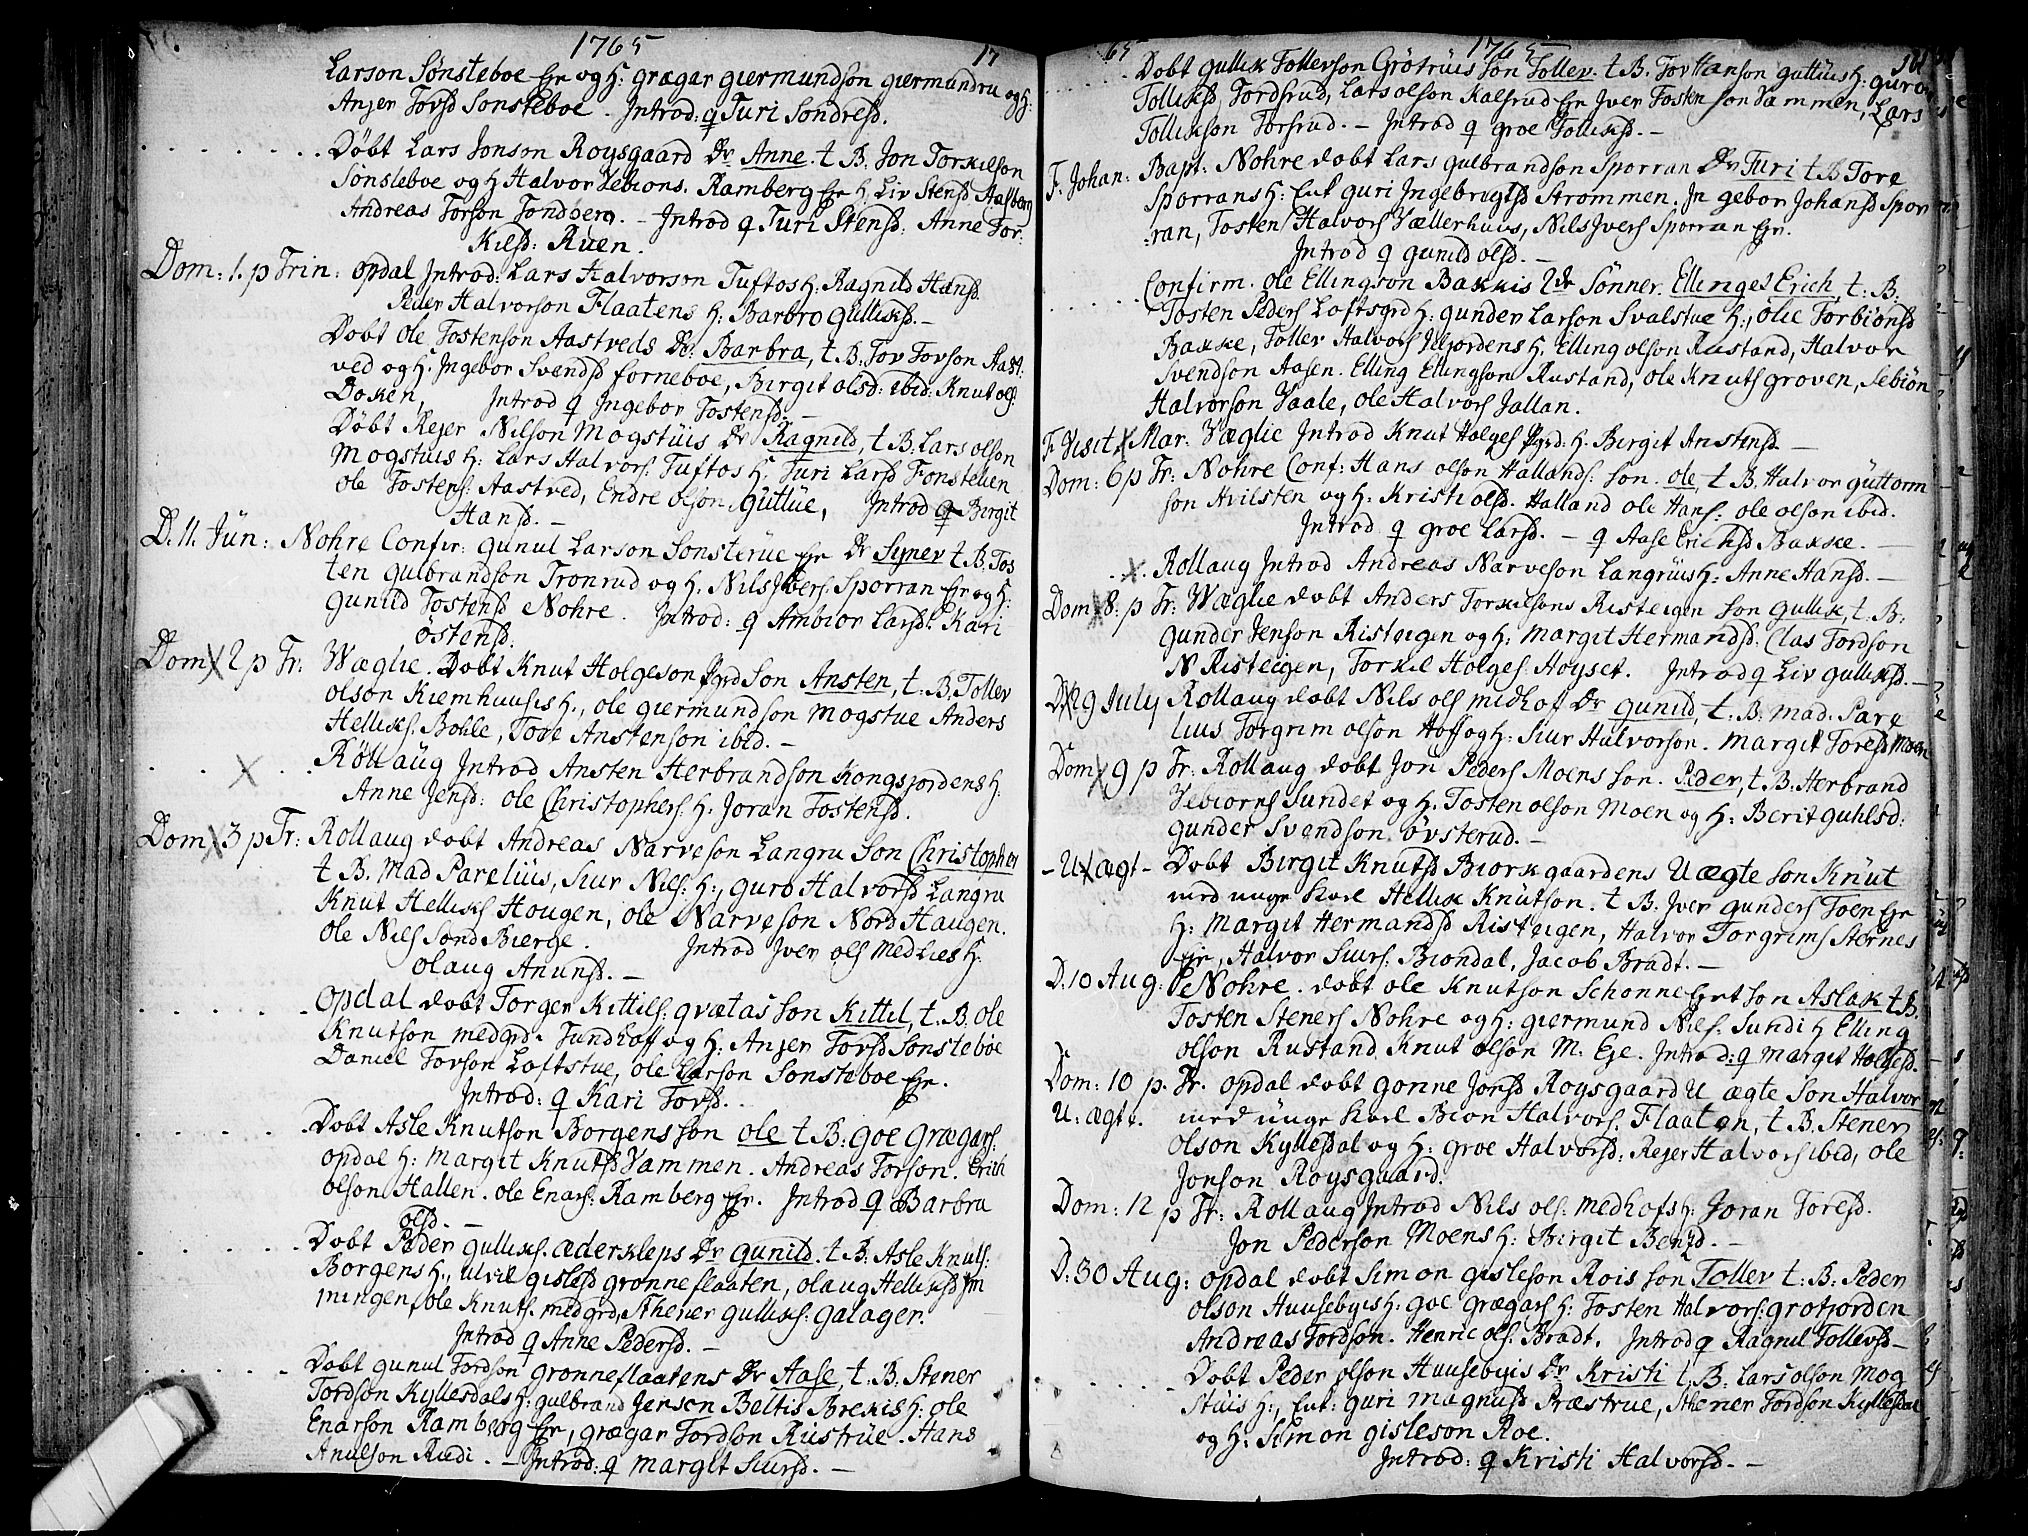 1765
17
Larson Sønsteboe Ejr og H: Grægar Giermundson Giermandru og H:
Anjer Torsd Sønsteboe. Introd: q Turi Sondresd.
Døbt Lars Jonson Roysgaard Dr Anne. t B. Jon Torkilson
Sønsteboe og H Halvor Vebions. Ramberg Ejr H. Liv Stensd Aasberg
Andreas Torson Tondberg. - Introd q Turi Stensd: Anne Tor:
Kilsd: Ruen.
Dom: 1. p Trin: Opdal Introd: Lars Halvorson Tuftos H: Ragnild Hansd.
Peder Halvorson Flaatens H: Barbro Gulliksd. -
Døbt Ole Tostenson Aastveds Dr: Barbra, t B. Tov Tovson Aast:
ved og H. Ingebor Svendsd Forneboe, Birgit Olsd: ibid: Knut Ols.
Doken, Introd q Ingebor Tostensd. -
Døbt Rejer Nilson Mogstuis Dr Ragnild, t B. Lars Olson
Mogstuis H: Lars Halvors. Tuftos H. Turi Larsd Fonstelien
Ole Tostens: Aastved, Endre Olson Guttue, Introd q Birgit
Hansd. -
D. 11. Jun: Nohre Confir: Gunul Larson Sønsterue Ejr Dr Signer t B. Tos
ten Gulbrandson Tronrud og H. Nils Ivers. Sporran Ejr og H:
Gunild Tostensd Nohre. Introd: q Ambior Larsd. Kari
Ostensd:
Dom 2 p Tr: Wæglie. Døbt Knut Holgeson Pgrd Son Ansten, t. B. Toller
Olson Kiemhuusis H., Ole Giermundson Mogstue Anders
Helliks. Bohle, Tove Anstenson ibid. -
Rollaug Introd Ansten Herbrandson Kongsjordens H
Anne Jensd: Ole Christophers H. Joran Tostensd.
Dom 3 p Tr: Rollaug døbt Andreas Narveson Langru Son Christopher
t B. Mad Parelius, Siur Nils: H:, Guro Halvorsd Langru
Knut Helliks Hougen, Ole Narveson Nord Haugen.
Ole Nils Sønd Bierge. Introd Iver Ols Medlies H:
Olaug Anunsd. -
Opdal døbt Torger Kittils: Qvætas Son Kittil, t. B. Ole
Knutson medgrd. Tundhoff og H: Anjer Torsd Sønsteboe
Daniel Torson Loftstue, Ole Larson Sonsteboe Ejr.
Introd: q Kari Torsd.
Døbt Asle Knutson Borgens Son Ole t B: Goe Grægars:
Opdal H: Margit Knutsd Vammen. Andreas Torson. Erich
Olson Hallen. Ole Enars: Ramberg Ejr. Introd q Barbru
Olsd. -
Døbt Peder Gulliks. Æderkleps Dr Gunild. t B: Asle Knuts:
Borgens H., Ulvil Gislesd Grønneflaaten, Olaug Helliksd Im
mingen, Ole Knuts. medgrd, Sthener Gulliks: Galager.
Introd q Anne Pedersd. -
Døbt Gunul Tordson Grønneflaatens Dr Aase, t. B. Stener
Tordson Kyllesdals H: Gulbrand Jenson Beltis Brekis H: Ole
Enarson Ramberg Ejr, Grægar Tordson Rustrue. Hans
Anulson Rudi. - Introd: q Margit Siursd. -
65
1765
Døbt Gullik Tollevson Grøtruis Son Tollev. t. B. Tov Hanson Guttuis H: Guro
Tolliksd, Tordsrud, Lars Olson Kalsrud Ejr Iver Tosten Son Vammen, Lars
Tollikson Torsrud. - Introd q Groe Tolliksd. -
F. Johan: Bapt: Nohre døbt Lars Gulbrandson Sporran Dr Turi t B Tore
Sporrans H: Enk Guri Ingebrugtsd Strommen. Ingebor Johansd Spor
:ran, Tosten Halvors Vællerhuus, Nils Ivers Sporran Ejr.
Introd q Gunild Olsd. -
Confirm. Ole Ellingson Bakkis 2de Sønner. Elling et Erich, t. B:
Tosten Peders Loftsgrd H: Gunder Larson Svalstue H:, Olie Torbionsd
Bakke, Toller Halvors Jeljordens H. Elling Olson Rustand, Halvor
Svendson Aasen. Elling Ellingson Rustand, Ole Knuts Groven, Sebiøn
Halvorson Vaale, Ole Halvors Jallan.
F Visit Mar. Væglie Introd Knut Holges Pgrd: H. Birgit Anstensd. -
Dom: 6 p Tr: Nohre Conf: Hans Olson Hallands: Son. Ole, t B. Halvor Guttorm
son Hvilsten og H: Kristi Olsd. Halland Ole Hans: Ole Olson ibid.
Introd q Groe Larsd. - q Aase Erichsd Bakke. -
Rollaug Introd Andreas Narveson Langruis H: Anne Hansd. -
Dom 8: p Tr: Wæglie døbt Anders Torkilsons Risteigen Son Gullik, t. B:
Gunder Jenson Risteigen og H: Margit Hermandsd. Clas Tordson
N Risteigen, Torkil Holges. Hoyset. Introd q Liv Gulliksd. -
D 29 July Rollaug døbt Nils Ols midhof Dr Gunild, t. B: Mad. Pare
lius Torgrim Olson Hoff og H: Siur Halvorson. Margit Toresd Moen
Dom 9 p Tr: Rollaug døbt Jon Peders Moens Son. Peder, t. B. Herbrand
Vebiorns Sundet og H. Tosten Olson Moen og H: Berit Guhlsd:
Gunder Svendson Øvsterud. -
- U ægt - Døbt Birgit Knutsd Biorkgaardens Uægte Son Knut
med unge Karl Hellik Knutson. t B. Iver Gunders Toen Ejr
H: Margit Hermandsd Risteigen, Halvor Torgrims Sternes
Ejr, Halvor Siurs. Biondal. Jacob Bradt. -
D. 10 Aug: Nohre. døbt Ole Knutson Schonne Ejrt Son Aslak t B.
Tosten Steners Nohre og H: Giermund Nils. Sundi H Elling
Olson Rustand Knut Olson M. Eje. Introd: q Margit Holgesd.
Dom: 10 p. Tr. Opdal døbt Gonne Jonsd Roysgaard U ægte Son Halvor
U: ægte. med unge Karl Bion Halvors. Flaaten, t B. Stener
Olson Kyllesdal og H: Groe Halvorsd: Rejer Halvors ibid, Ole
Jonson Roysgaard.
Dom: 12 p Tr: Rollaug Introd Nils Ols: Medhofs H: Joran Toresd.
Jon Pederson Moens H: Birgit Bentsd. -
D: 30 Aug: Opdal døbt Simon Gisleson Rois Son Tollev t. B: Peder
Olson Huusebyis H: Goe Grægars H: Tosten Halvors: Grotjorden
Andreas Tordson. Henric Ols: Bradt. Introd q Ragnil Tollevsd -
Døbt Peder Olson Huusebyis Dr Kristi t B: Lars Olson Mog
stuis H:, Enk: Guri Magnusd Præstrue, Sthener Tordson Kyllesdal
og H: Simon Gisleson Roe.
Introd: q Kristi Halvorsd. -